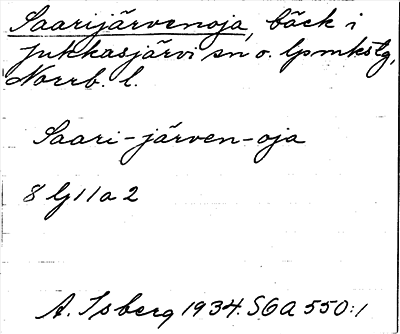 Saarijärvenoja, bäck i
Jukkasjärvi sn o. lpmkstg,
Norrb. l.
Saari-järven-oja
8 lj 11a 2
A. Isberg 1934. SGA 550:1